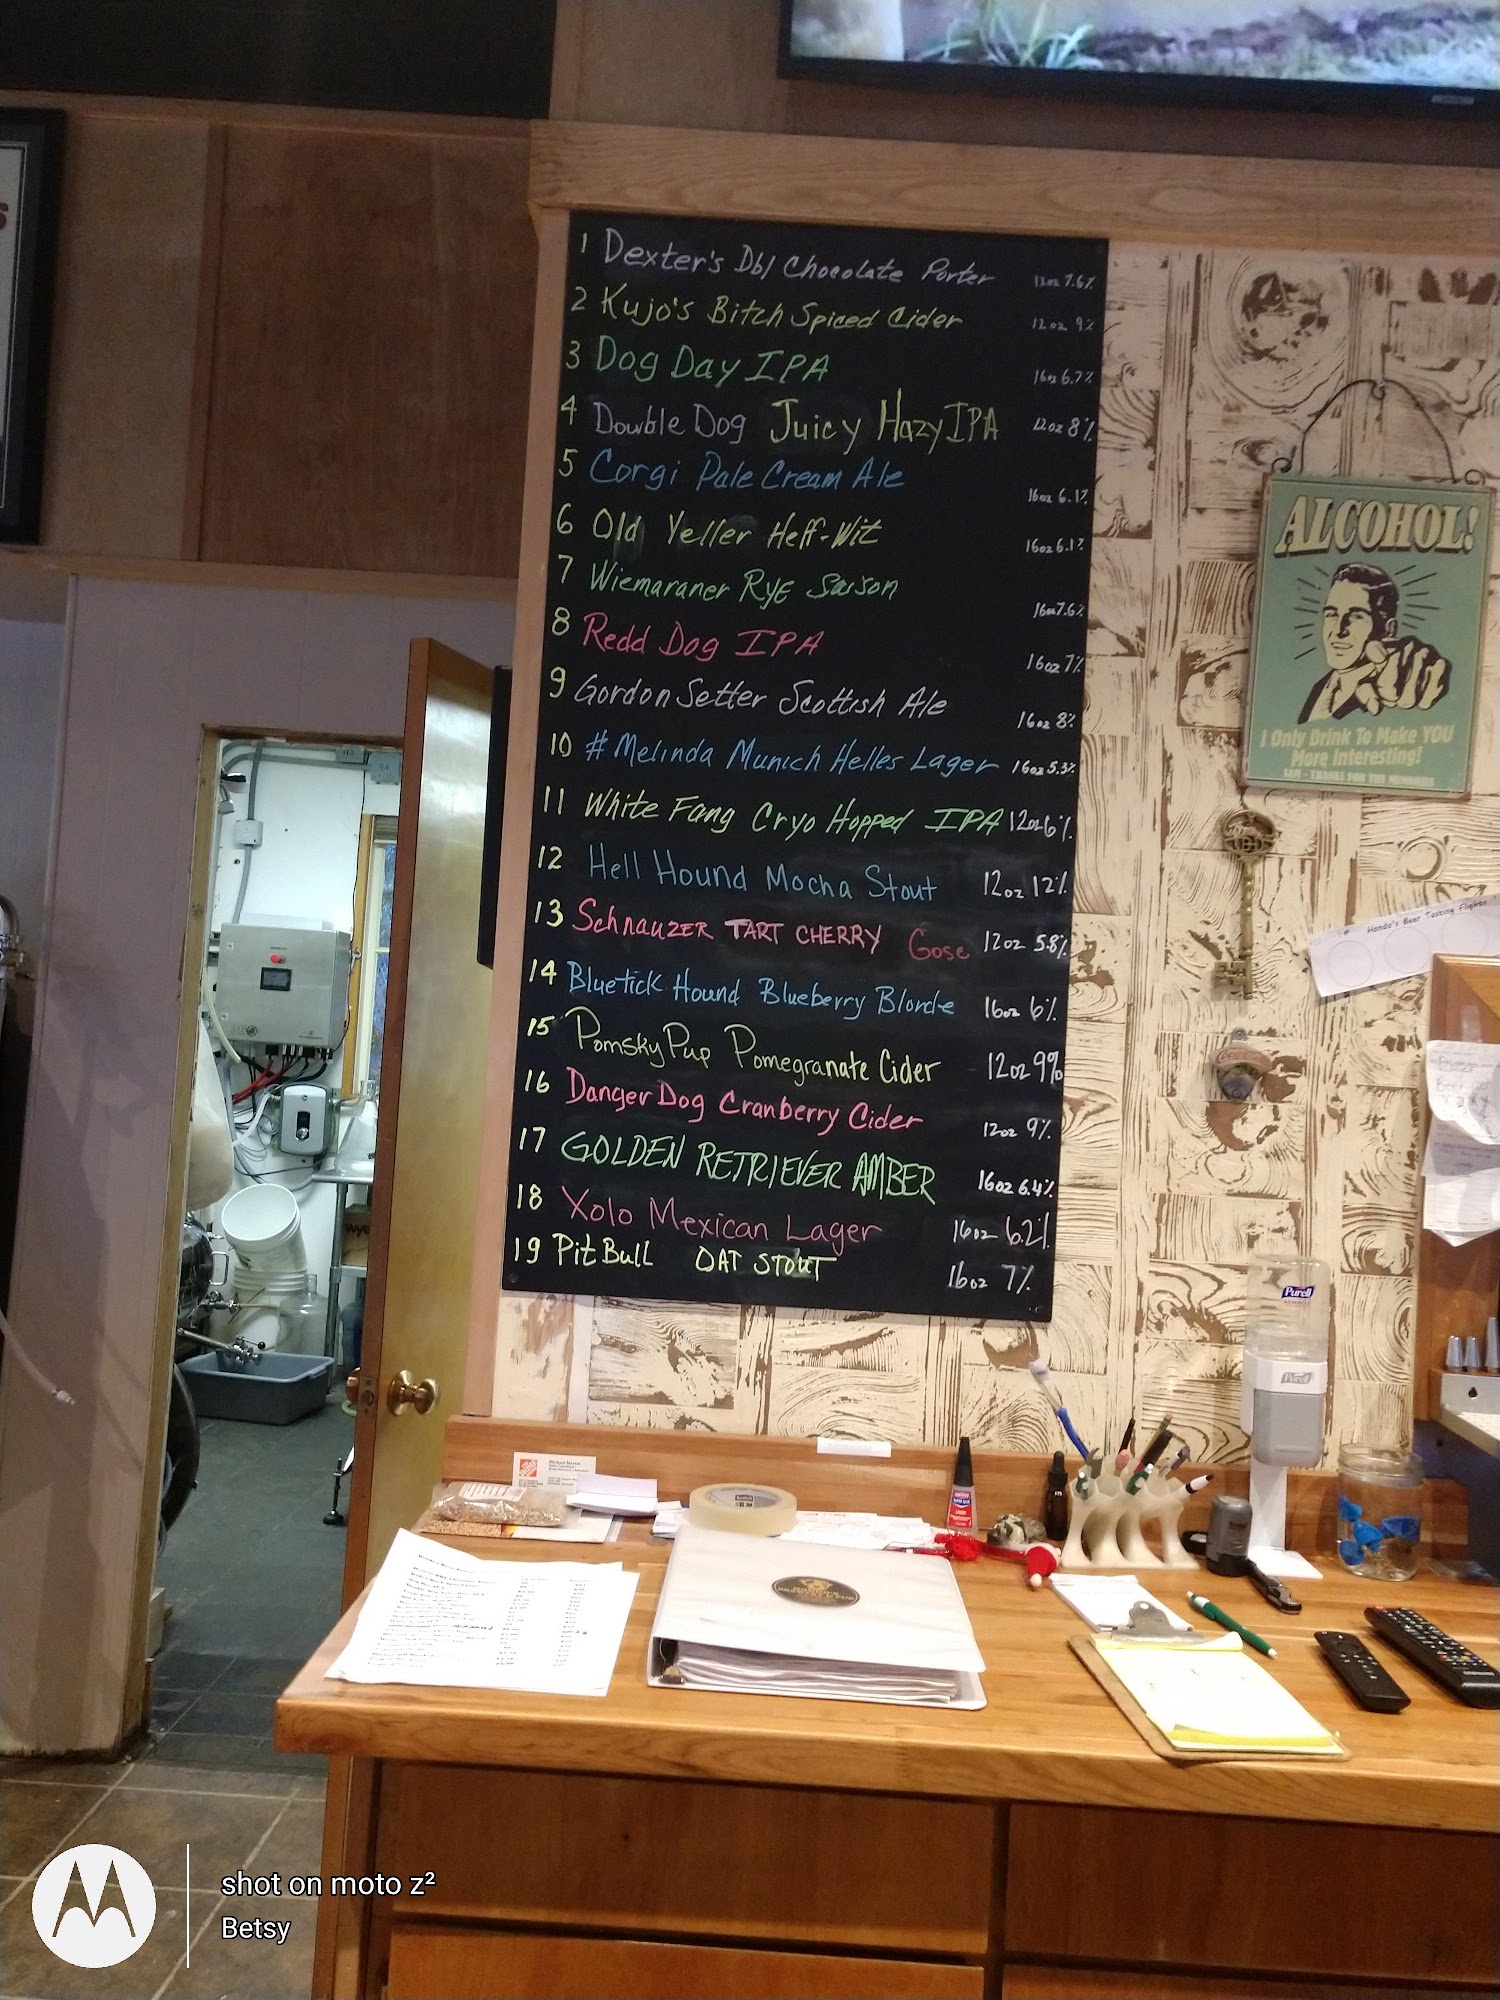 1 Dexter's Dbl Chocolate Porter 12oz 7.6%
2 Kujo's Bitch Spiced Cider 12oz 9%
3 Dog Day IPA 16oz 6.7%
4 Double Dog Juicy Hazy IPA 12oz 8%
5 Corgi Pale Cream Ale 16oz 6.1%
6 Old Yeller Heff-Wit 16oz 6.1%
7 Wiemaraner RYE Saison 16oz 7.6%
8 Redd Dog IPA 16oz 7%
9 Gordon Setter Scottish Ale 16oz 8%
10 #Melinda Munich Helles Lager 16oz 5.3%
11 White Fang Cryo Hopped IPA 12oz 6%
12 Hell Hound Mocha Stout 12oz 12%
13 Schnauzer TART CHERRY Gose 12oz 5.8%
14 Bluetick Hound Blueberry Blonde 16oz 6%
15 Pomsky Pup Pomegranate Cider 12oz 9%
16 Danger Dog Cranberry Cider 12oz 9%
17 GOLDEN RETRIEVER AMBER 16oz 6.4%
18 Xolo Mexican Lager 16oz 6.2%
19 Pit Bull OAT STOUT 16oz 7%
ALCOHOL!
I Only Drink To Make YOU
More Interesting!
Hondo's Beer Tasting Flights
Purell
Purell
shot on moto z²
Betsy